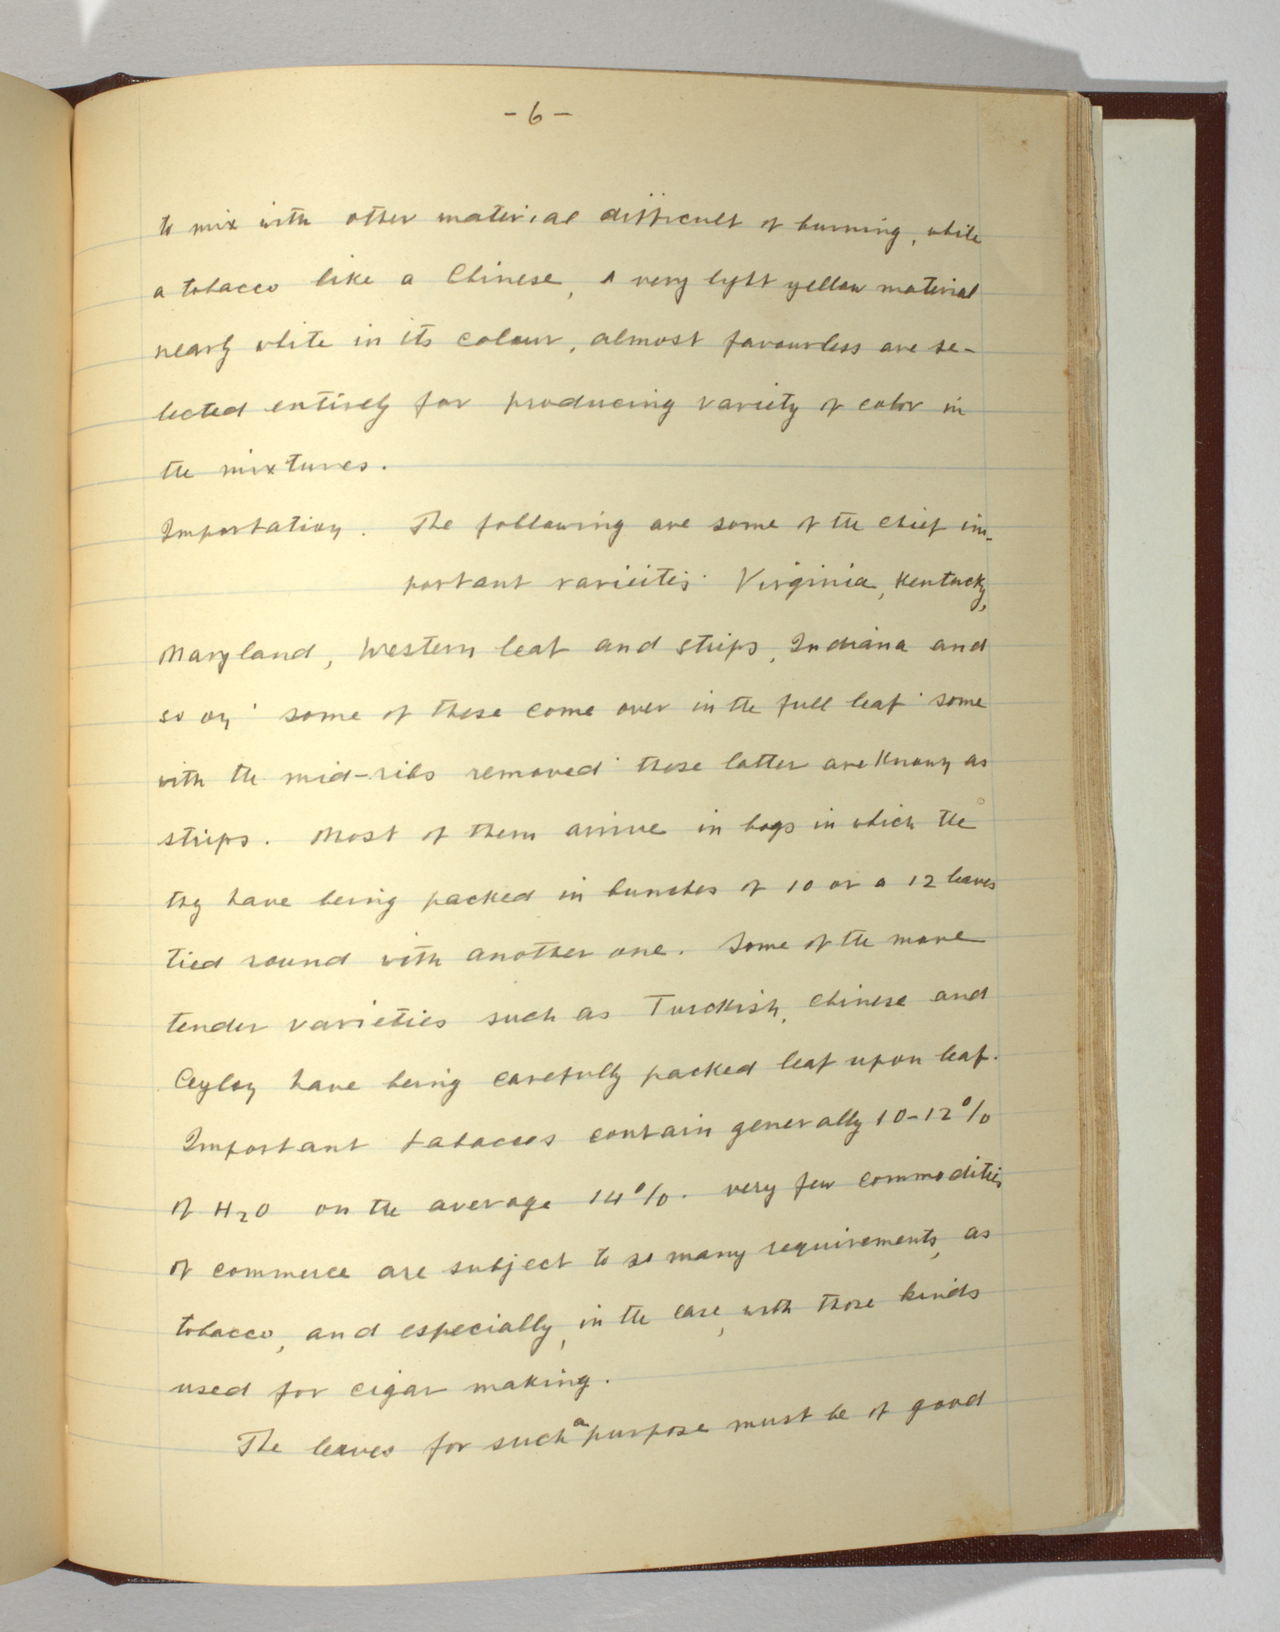 - 6 -
to mix with other material difficult of burning, while
a tobacco like a Chinese, a very light yellow material
nearly white in its colour, almost favourless are se-
lected entirely for producing variety of color in
the mixtures.
Importation. The following are some of the chief im-
portant varieites: Virginia, Kentucky,
Maryland, Western leaf and strips, Indiana and
so on; some of these come over in the full leaf; some
with the mid-ribs removed; these latter are known as
strips. Most of them arrive in hogs in which the
they have being packed in bunches of 10 or a 12 leaves
tied round with another one. Some of the more
tender varieties such as Turckish, Chinese and
Ceylon have being carefully packed leaf upon leaf.
Important tabaccos contain generally 10-12%
of H2O on the average 14%. very few commodities
of commerce are subject to so many requirements, as
tobacco, and especially, in the case, with those kinds
used for cigar making.
The leaves for such a purpose must be of good